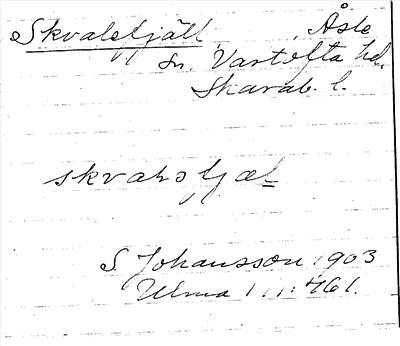 Skvalstjäll, Åsle
sn, Vartofta hd.
Skarab. l.
S. Johansson 1903
Ulma 111:461.